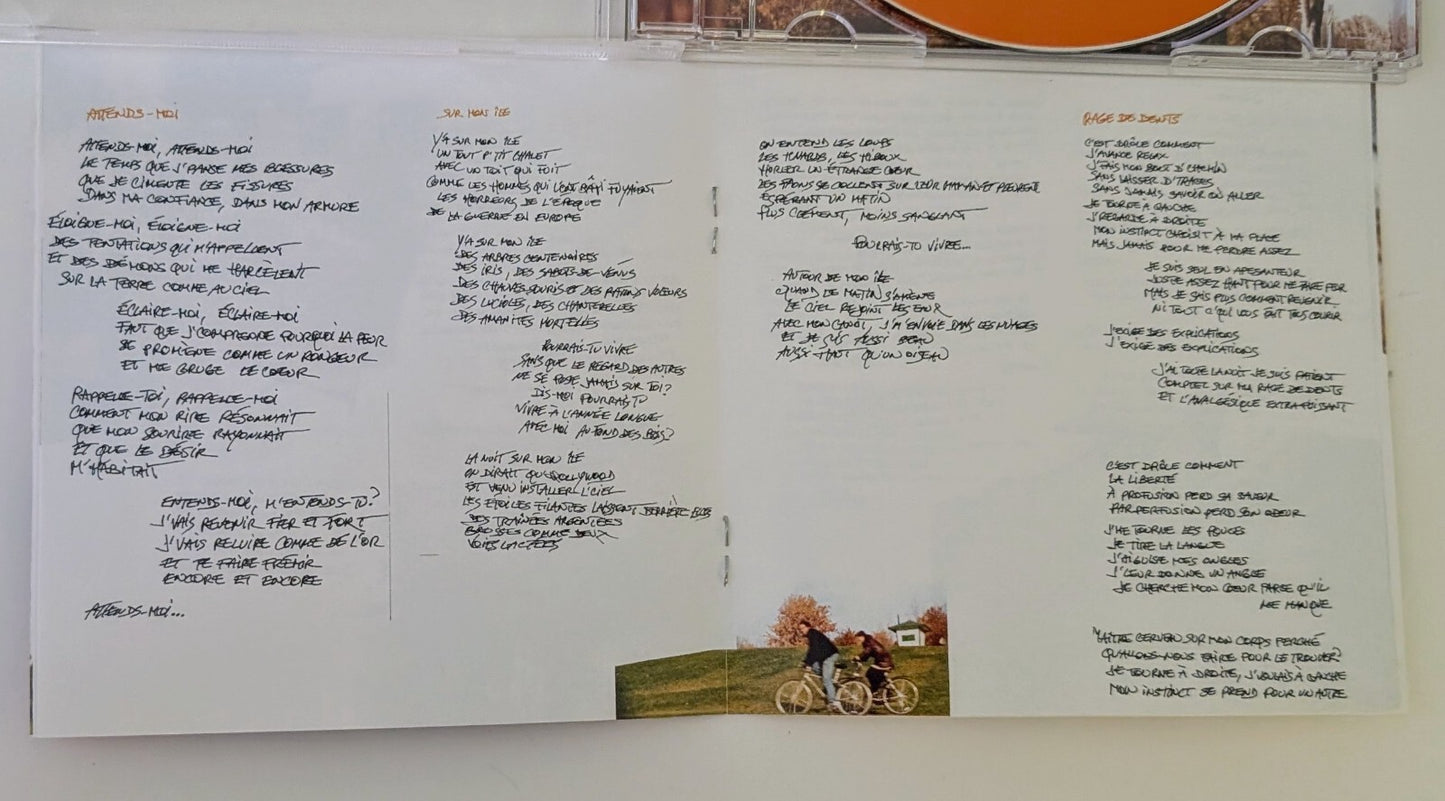 ATTENDS-MOI
ATTENDS-MOI, ATTENDS-MOI
LE TEMPS QUE J'PANSE MES BLESSURES
QUE JE CIMENTE LES FISSURES
DANS MA CONFIANCE, DANS MON ARMURE
ÉLOIGNE-MOI, ÉLOIGNE-MOI
DES TENTATIONS QUI M'APPELLENT
ET DES DÉMONS QUI ME HARCÈLENT
SUR LA TERRE COMME AU CIEL
ÉCLAIRE-MOI, ÉCLAIRE-MOI
FAUT QUE J'COMPRENNE POURQUOI LA PEUR
SE PROMÈNE COMME UN RONGEUR
ET ME GRUGE LE COEUR
RAPPELLE-TOI, RAPPELLE-MOI
COMMENT MON RIRE RÉSONNAIT
QUE MON SOURIRE RAYONNAIT
ET QUE LE DÉSIR
M'HABITAIT
ENTENDS-MOI, M'ENTENDS-TU?
J'VAIS REVENIR FIER ET FORT
J'VAIS RELUIRE COMME DE L'OR
ET TE FAIRE FRÉMIR
ENCORE ET ENCORE
ATTENDS-MOI...
SUR MON ÎLE
Y'A SUR MON ÎLE
UN TOUT P'TIT CHALET
AVEC UN TOIT QUI FUIT
COMME LES HOMMES QUI L'ONT BÂTI FUYAIENT
LES HORREURS DE L'ÉPOQUE
DE LA GUERRE EN EUROPE
Y'A SUR MON ÎLE
DES ARBRES CENTENAIRES
DES IRIS, DES SABOTS-DE-VÉNUS
DES CHAUVES-SOURIS ET DES RATONS VOLEURS
DES LUCIOLES, DES CHANTERELLES
DES AMANITES MORTELLES
POURRAIS-TU VIVRE
SANS QUE LE REGARD DES AUTRES
NE SE POSE JAMAIS SUR TOI?
DIS-MOI POURRAIS-TU
VIVRE À L'ANNÉE LONGUE
AVEC MOI AU FOND DES BOIS?
LA NUIT SUR MON ÎLE
ON DIRAIT QU'HOLLYWOOD
EST VENU INSTALLER L'CIEL
LES ÉTOILES FILANTES LAISSENT DERRIÈRE ELLES
DES TRAÎNÉES ARGENTÉES
GROSSES COMME DEUX
VOIES LACTÉES
ON ENTEND LES LOUPS
LES HUARDS, LES HIBOUX
HURLER UN ÉTRANGE COEUR
DES FAONS SE COLLENT SUR LEUR MAMAN ET PLEURENT
ESPÉRANT UN MATIN
PLUS CLÉMENT, MOINS SANGLANT
POURRAIS-TU VIVRE...
AUTOUR DE MON ÎLE
QUAND LE MATIN S'AMÈNE
LE CIEL REJOINT LES EAUX
AVEC MON CANOT, J'M'ENVOLE DANS LES NUAGES
ET JE SUIS AUSSI BEAU
AUSSI HAUT QU'UN OISEAU
RAGE DE DENTS
C'EST DRÔLE COMMENT
J'AVANCE RELAX
J'FAIS MON BOUT D'CHEMIN
SANS LAISSER D'TRACES
SANS JAMAIS SAVOIR OÙ ALLER
JE TOURNE À GAUCHE
J'REGARDE À DROITE
MON INSTINCT CHOISIT À MA PLACE
MAIS JAMAIS POUR ME PERDRE ASSEZ
JE SUIS SEUL EN APESANTEUR
JUSTE ASSEZ HAUT POUR ME FAIRE PEUR
MAIS JE SAIS PLUS COMMENT REVENIR
NI TOUT C'QUI VOUS FAIT TOUS COURIR
J'EXIGE DES EXPLICATIONS
J'EXIGE DES EXPLICATIONS
J'AI TOUTE LA NUIT JE SUIS PATIENT
COMPTEZ SUR MA RAGE DE DENTS
ET L'ANALGÉSIQUE EXTRA-PUISSANT
C'EST DRÔLE COMMENT
LA LIBERTÉ
À PROFUSION PERD SA SAVEUR
PAR PERFUSION PERD SON ODEUR
J'ME TOURNE LES POUCES
JE TIRE LA LANGUE
J'AIGUISE MES ONGLES
J'LEUR DONNE UN ANGLE
JE CHERCHE MON COEUR PARCE QU'IL
ME MANQUE
MAÎTRE CERVEAU SUR MON CORPS PERCHÉ
QU'ALLONS-NOUS FAIRE POUR LE TROUVER?
JE TOURNE À DROITE, J'VOULAIS À GAUCHE
MON INSTINCT SE PREND POUR UN AUTRE